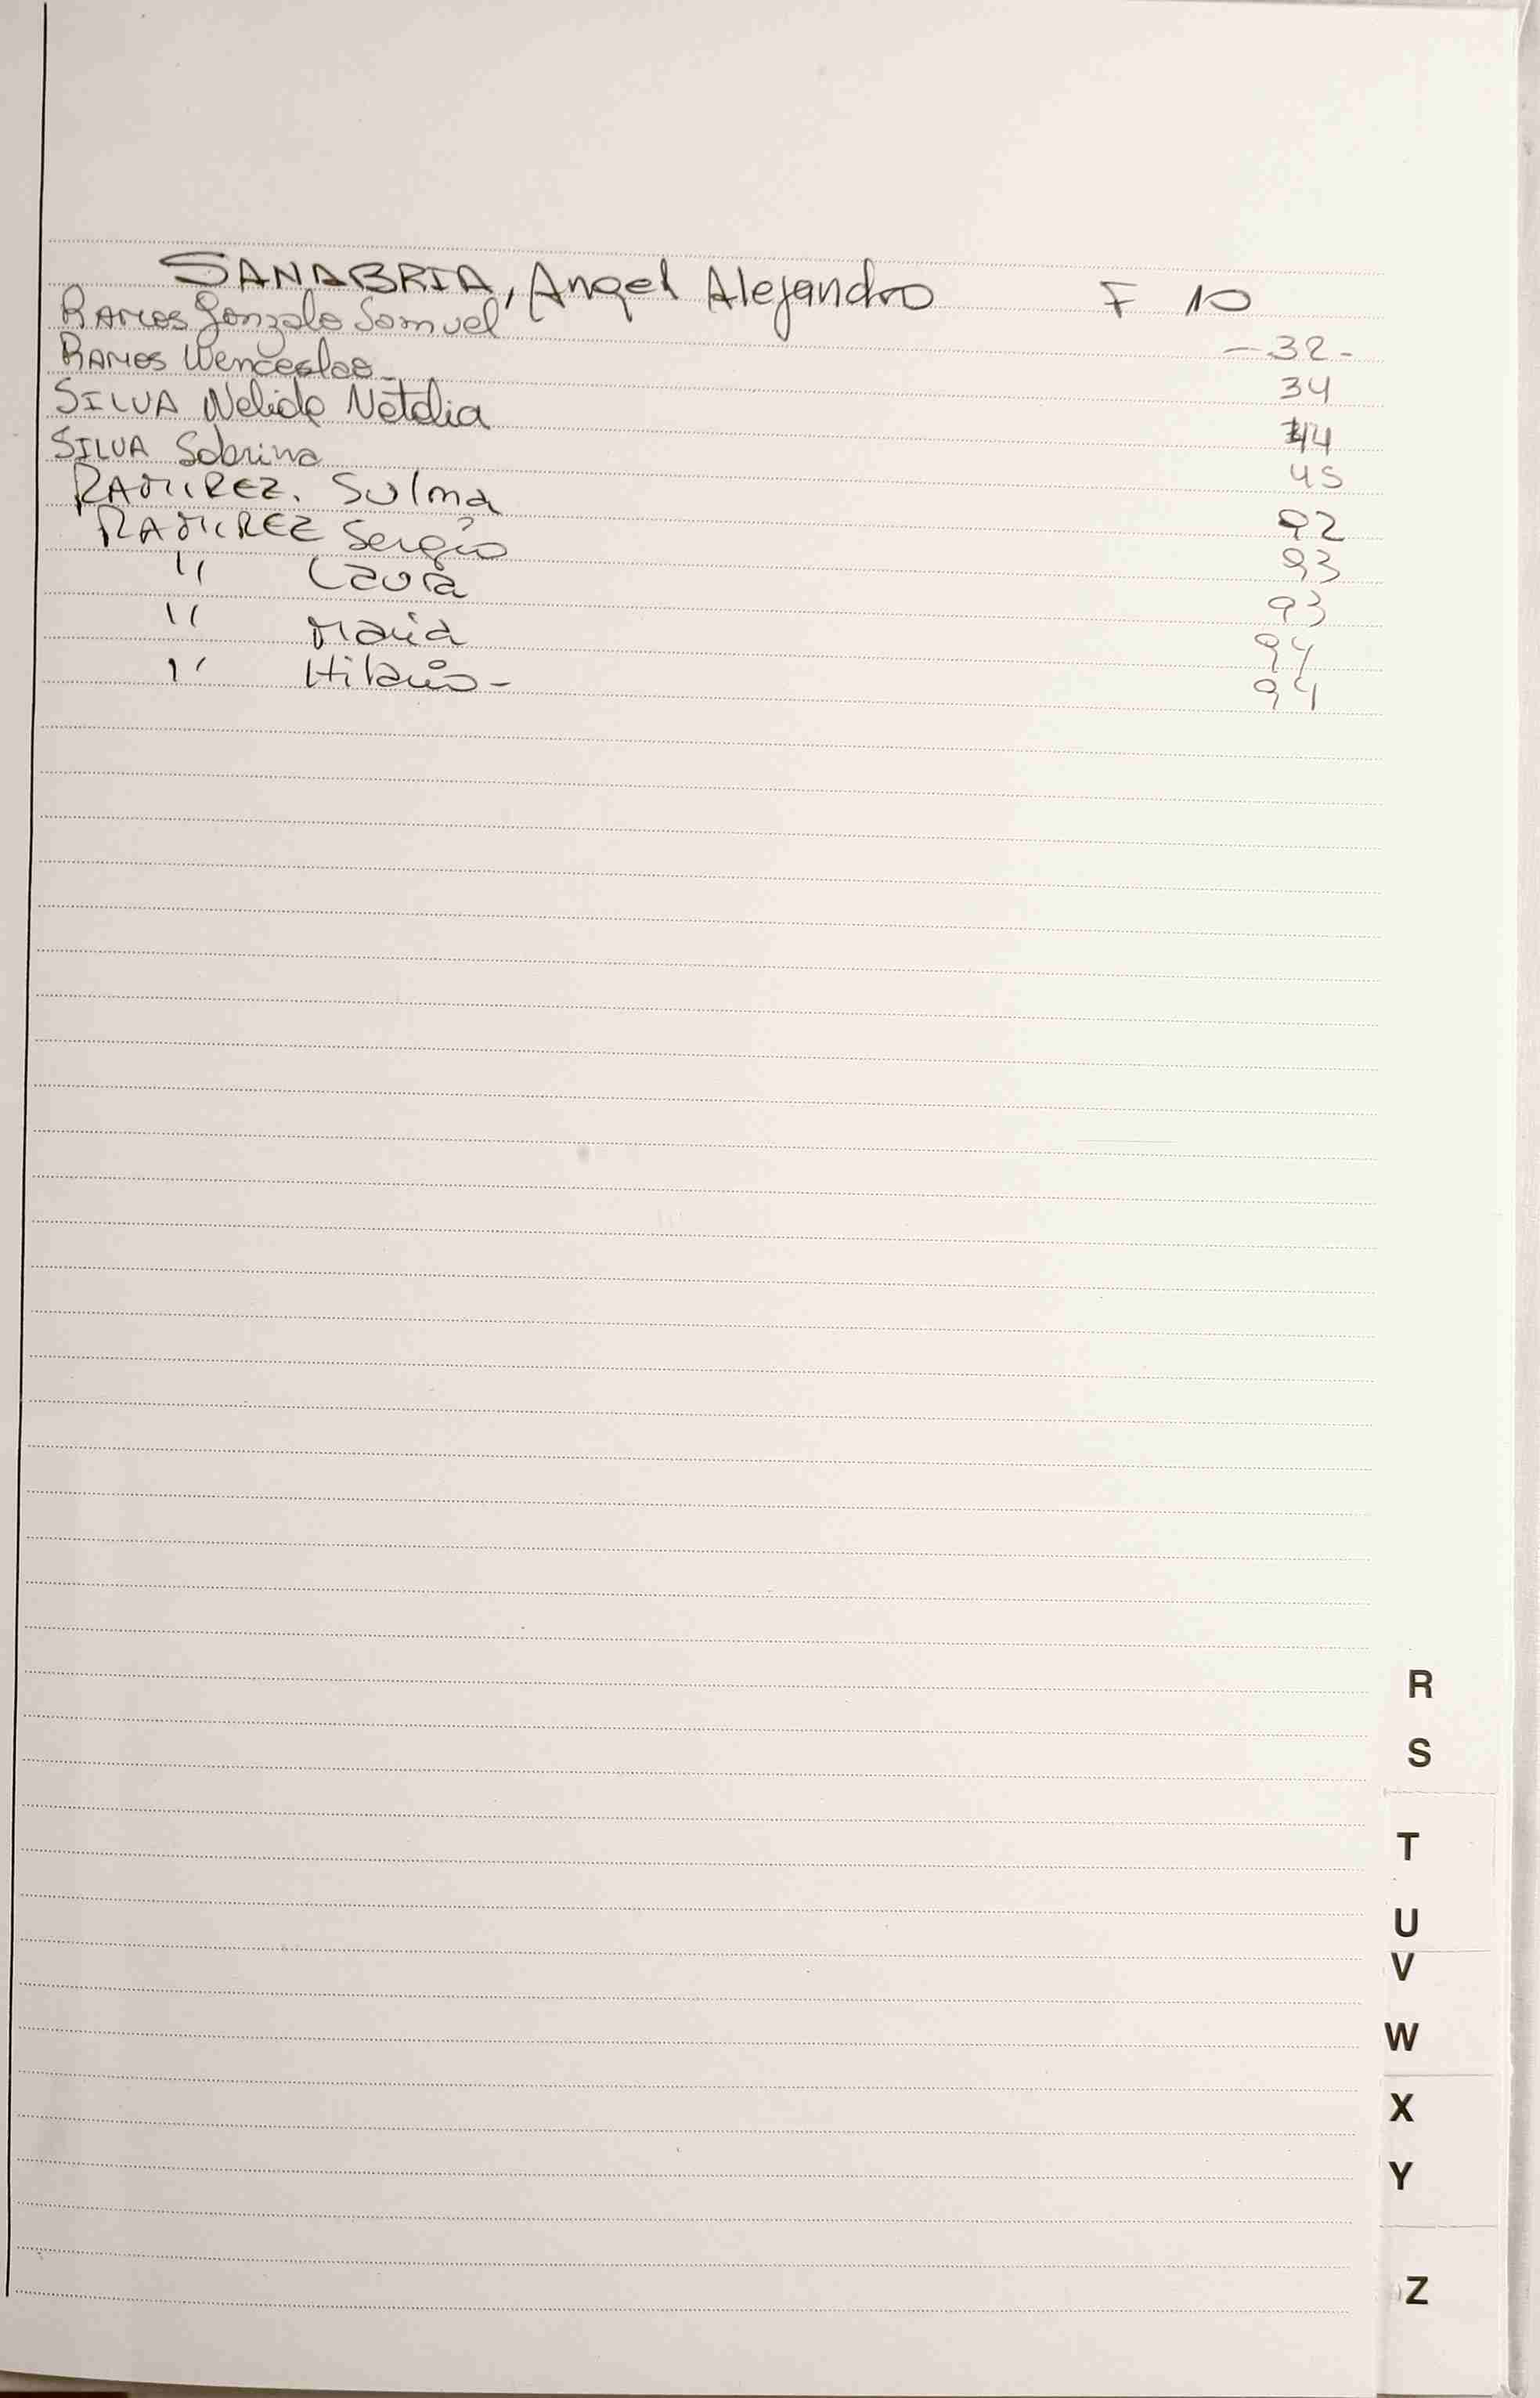 SANABRIA, Angel Alejandro F 10
RAMOS Gonzalo Samuel -32-
RAMOS Wenceslao- 34
SILVA Nelida Natalia 44
SILVA Sabrina 45
RAMIREZ. Sulma 92
RAMIREZ Sergio 93
" Laura 93
" Maria 94
" Hilario- 94
R
S
T
U
V
W
X
Y
Z